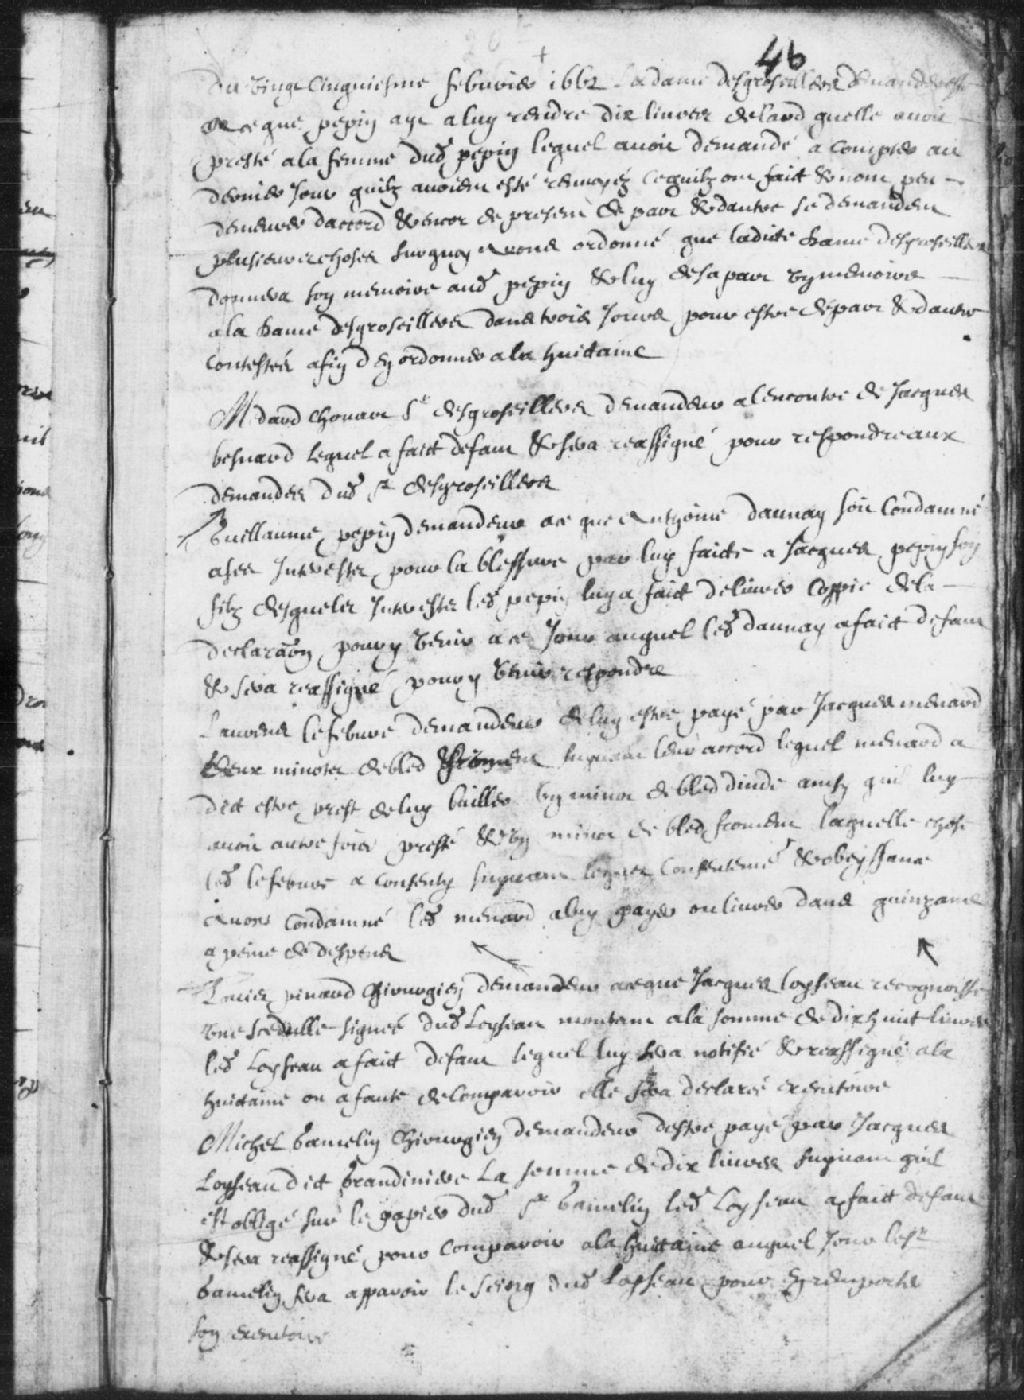 46
Du vingt Cinquiesme febvrier 1662 La dame desgroseillers demanderesse
a ce que pepin aye a luy rendre dix livres de lard quelle avoit
presté a la femme dud pepin lequel avoit demandé a compter au
dernier Jour quilz avoient esté renvoyez ce quilz ont faict & nont peu
demeurer daccord & encor de present de part & dautre se demandent
plusieurs choses surquoy avons ordonné que ladicte dame desgroseillers
donnera son memoire aud pepin & luy de sa part un memoire
a la dame desgroseillers dans trois Jours pour estre de part & dautre
contestés afin d en ordonner a la huictaine
Medard chouart sr desgroseillers demandeur a lencontre de Jacques
besnard lequel a faict defaut & sera reassigné pour respondre aux
demandes dud sr desgroseillers
Guillaume pepin demandeur a ce que Anthoine daunay soit Condamné
a ses Interestz pour la blessure par luy faicte a Jacques pepin son
filz desquelz Interestz led pepin luy a faict delivrer Coppie de la
declaraon pour y venir a ce Jour auquel led daunay a faict defaut
& sera reassigné pour y venir respondre
Laurens lefebvre demandeur de luy estre payé par Jacques menard
deux minotz de bled froment suyvant leur accord lequel menard a
dict estre prest de luy bailler un minot de bled dinde ainsy quil luy
avoit autre fois presté & un minot de bled froment laquelle chose
led lefebvre a consenty suyvant lequel consentemt & obeyssance
avons condamné led menard a luy payer ou livrer dans quinzaine
a peine de despens
Louis pinard chirurgien demandeur a ce que Jacques loyseau recognoisse
une scedulle signée dud Loyseau montant a la somme de dix huit livres
led Loyseau a faict defaut lequel luy sera notifié & reassigné a la
huictaine ou a faute de comparoir elle sera declarée executoire
Michel Gamelin chirurgien demandeur destre payé par Jacques
Loyseau dict Grandiniere La somme de dix livres suyvant quil
est obligé sur le papier dud sr Gamelin led Loyseau a faict defaut
& sera reassigné pour comparoir a la huictaine auquel Jour led sr
Gamelin fera apparoir le seing dud Loyseau pour en remporter
son executoire